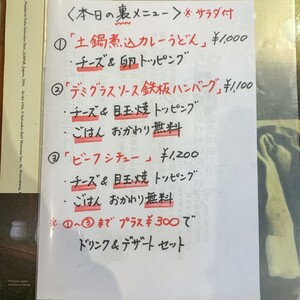 〈本日の裏メニュー〉※サラダ付
①「土鍋煮込カレーうどん」¥1,000
・チーズ&卵トッピング
②「デミグラスソース鉄板ハンバーグ」¥1,100
・チーズ&目玉焼トッピング
・ごはんおかわり無料
③「ビーフシチュー」¥1,200
・チーズ&目玉焼トッピング
・ごはんおかわり無料
※①〜③までプラス¥300で
ドリンク&デザートセット